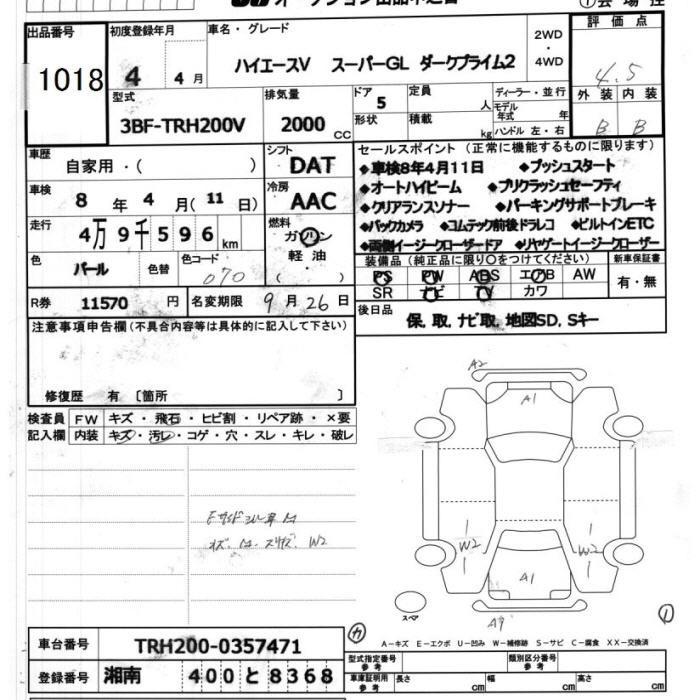 オークション出品申込書
① 会場控
出品番号 初度登録年月 車名・グレード 2WD・4WD 評価点
1018 4 4月 ハイエースV スーパーGL ダークプライム2 4.5
型式 排気量 ドア 5 定員 人 ディーラー・並行 外装 内装
3BF-TRH200V 2000 CC 形状 積載 kg モデル年式 年 ハンドル 左・右 B B
車歴 シフト セールスポイント (正常に機能するものに限ります)
自家用・( ) DAT ◆車検8年4月11日 ◆プッシュスタート
車検 冷房 ◆オートハイビーム ◆プリクラッシュセーフティ
8年 4月(11日) AAC ◆クリアランスソナー ◆パーキングサポートブレーキ
走行 燃料 ◆バックカメラ ◆コムテック前後ドラレコ ◆ビルトインETC
4万9千596km ガソリン ◆両側イージークローザードア ◆リヤゲートイージークローザー
色 色替 色コード 軽油・( ) 装備品(純正品に限り○をつけてください) 新車保証書
パール 070 PS PW ABS エアB AW 有・無
SR ナビ TV カワ
R券 11570円 名変期限 9月26日 後日品
保,取,ナビ取,地図SD,Sキー
注意事項申告欄(不具合内容等は具体的に記入して下さい)
修復歴 有 〔箇所 〕
検査員 FW キズ・飛石・ヒビ割・リペア跡・×要
記入欄 内装 キズ・汚レ・コゲ・穴・スレ・キレ・破レ
A2
A1
W2 W2
A1
スペア
①
車台番号 TRH200-0357471 カ
A-キズ E-エクボ U-凹み W-補修跡 S-サビ C-腐食 XX-交換済
登録番号 湘南 400 と 8368
型式指定番号 参考 類別区分番号 参考
車庫証明用 参考 長さ cm 幅 cm 高さ cm